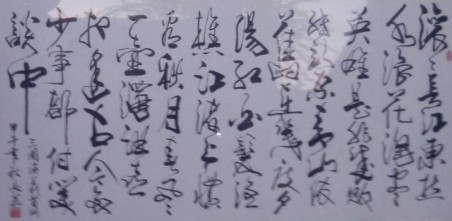 滚々長江東逝
水浪花淘盡
英雄是非成敗
轉頭空青山依
舊在幾度夕
陽紅白髮漁
樵江渚上慣
看秋月春風
一壺濁酒喜
相逢古今多
少事都付笑
談中
三國演義
甲午